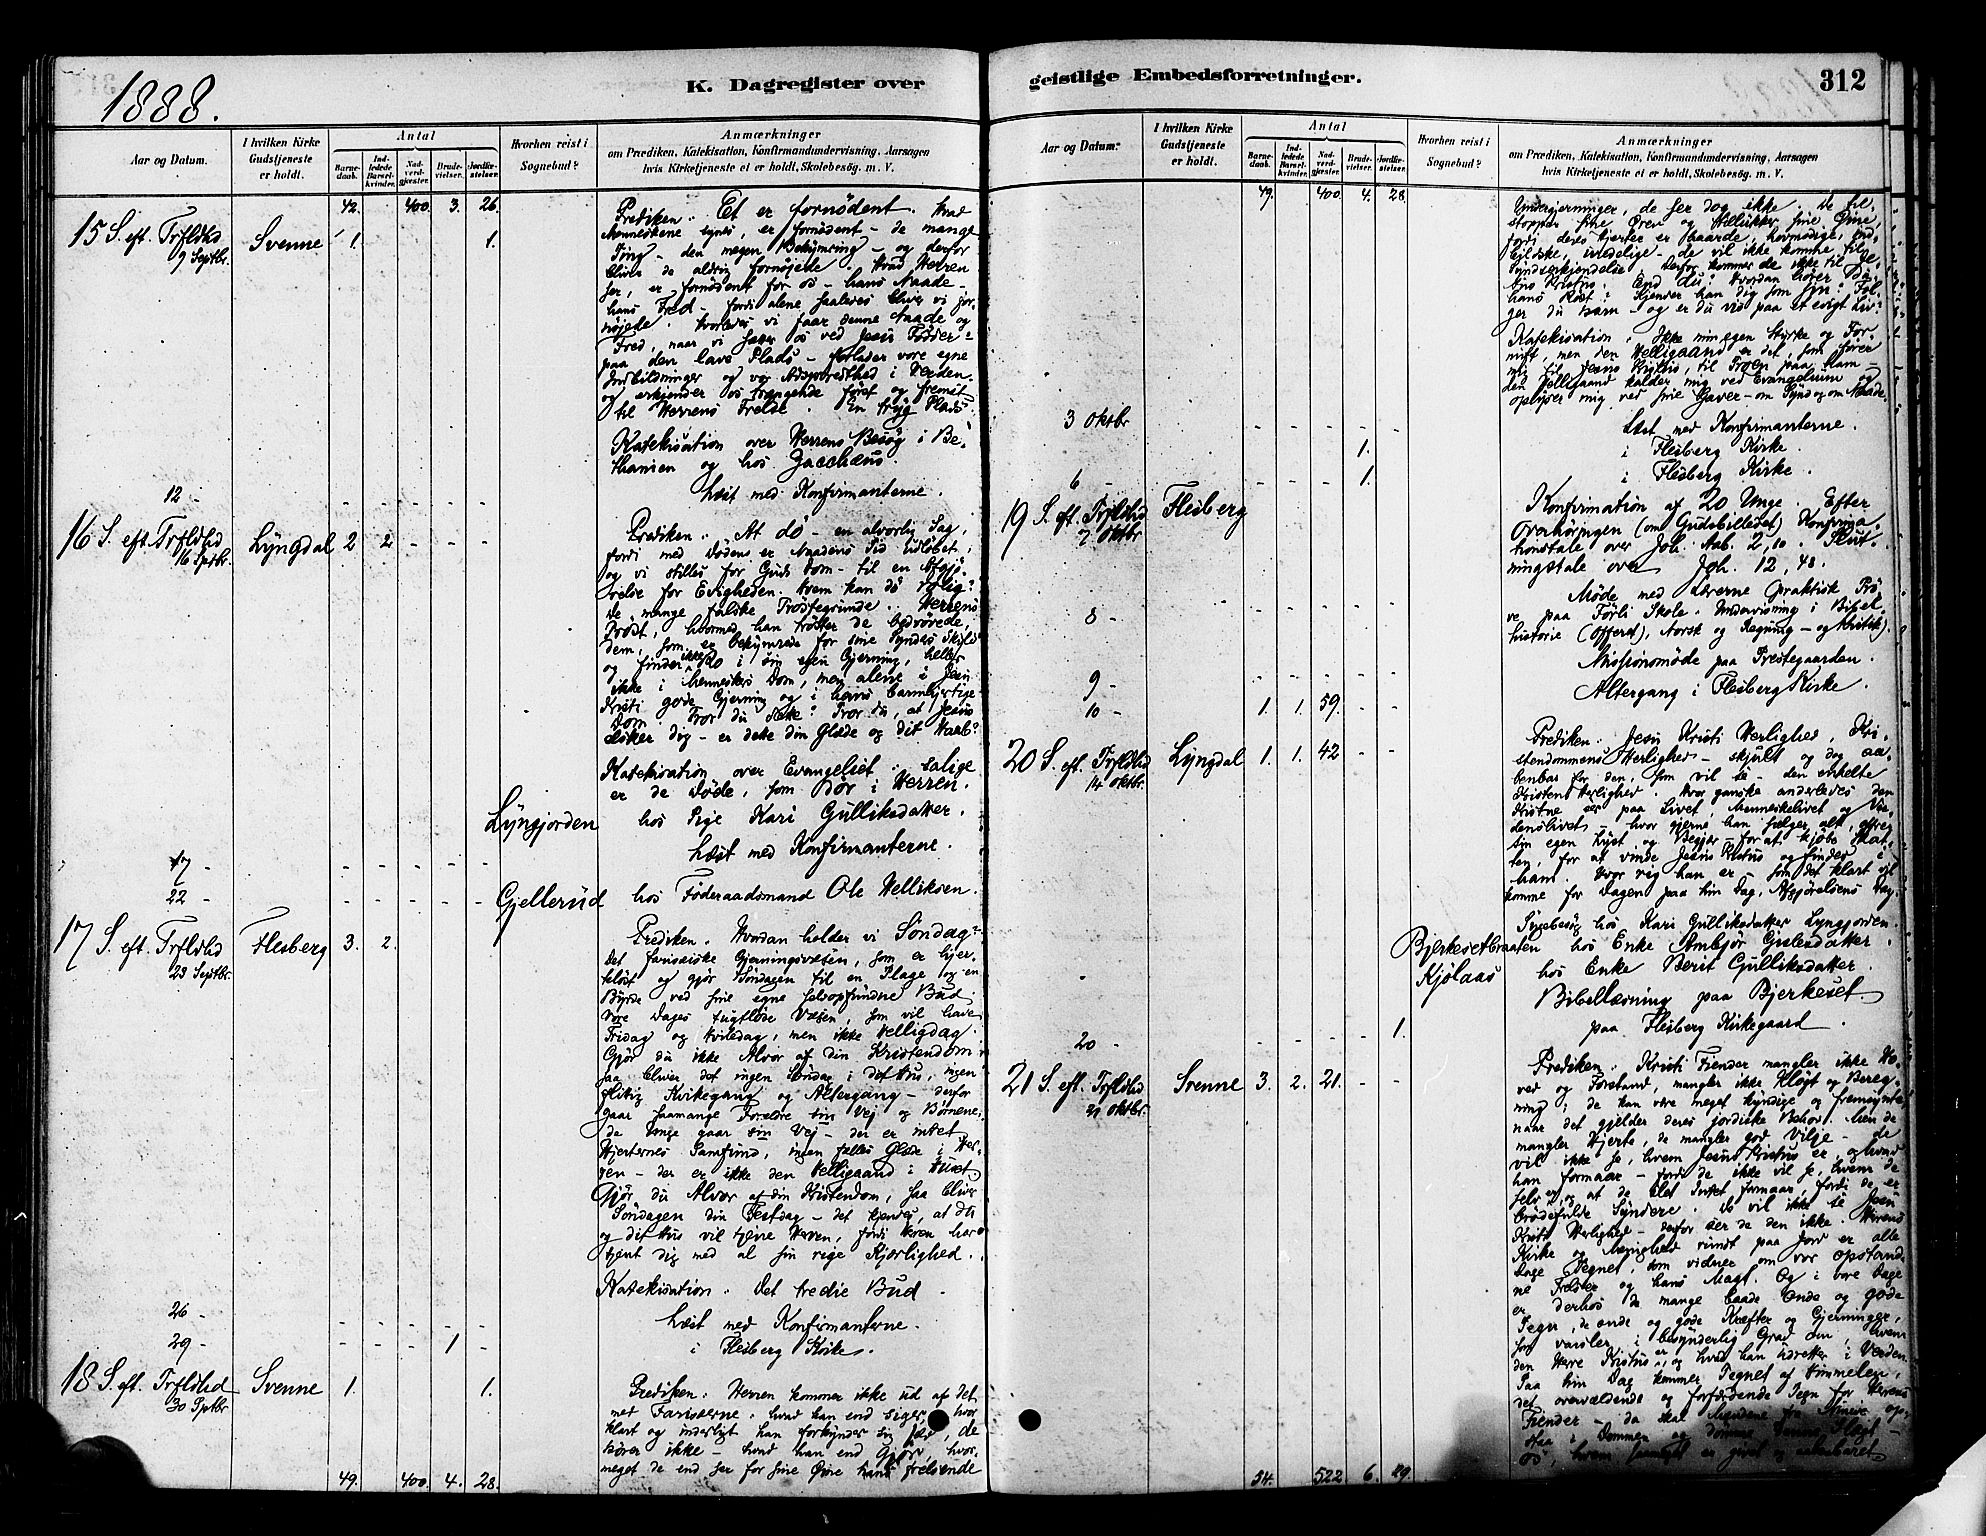 1888.
K. Dagregister over
Aar og Datum.
I hvilken Kirke
Gudstjeneste
er holdt.
Antal
Barne-
daab.
Ind-
ledede
Barsel-
kvinder.
Nad-
verd-
gjester.
Brude-
vielser.
Jordfæ-
stelser.
Hvorhen reist i
Sognebud?
Anmærkninger
om Prædiken, Katekisation, Konfirmandundervisning, Aarsagen
hvis Kirketjeneste ei er holdt, Skolebesøg. m. V.
42. 400. 3. 26.
15 S. eft. Trfldhd Svenne 1. 1.
9 Septbr.
Prediken. Et er fornödent. Hvad
Menneskene synes, er fornödent - de mange
Ting - den megen Bekymring - og derfor
bliver de aldrig fornöjede. Hvad Herren
ser, er fornödent for os - hans Naade -
hans Fred - fordi alene saaledes bliver vi for-
nöjede. Hvorledes vi faar denne Naade og
Fred, naar vi sætter os ved Jesu Födder -
paa den lave Plads - forlader vore egne
Indbildninger og vor Adspredthed i Verden
og erkjender os trængende först og fremst
til Herrens Frelse. En tryg Plads.
Katekisation over Herrens Besög i Be-
thanien og hos Zacchæus.
12 -
Læst med Konfirmanterne.
16 S. eft. Trfldhd Lyngdal 2 2
16 Sptbr.
Prediken. At dö - en alvorlig Sag,
fordi med Döden er Naadens Tid udlöbet,
og vi stilles for Guds Dom - til en Afgjö-
relse for Evigheden. Hvem kan dö rolig?
De mange falske Tröstegrunde. Herrens
Tröst, hvormed han tröster de bedrövede,
dem, som er bekymrede for sine Synders Skyld
og finder ikke Ro i sin egen Gjerning, heller
ikke i Menneskers Dom, men alene i Jesu
Kristi gode Gjerning og i hans barmhjertige
Dom. Tror du dette? Tror du, at Jesus
elsker dig - er dette din Glæde og dit Haab?
Katekisation over Evangeliet. Salige
er de Döde, som dör i Herren.
Lyngjorden hos Pige Kari Gulliksdatter.
17 -
Læst med Konfirmanterne.
22 - Gjellerud hos Föderaadsmand Ole Helliksen.
17 S. eft. Trfldhd Flesberg 3. 2.
23 Septbr.
Prediken. Hvordan holder vi Söndag?
Det farisæiske Gjerningsvæsen, som er hjer-
telöst og gjör Söndagen til en Plage og en
Byrde ved sine egne selvopfundne Bud.
Vore Dages tugtlöse Væsen, som vil have
Fridag og Hviledag, men ikke Helligdag.
Gjör du ikke Alvor af din Kristendom,
saa bliver det ingen Söndag i dit Hus, ingen
flittig Kirkegang og Altergang - derfor
gaar saamange Forældre sin Vej og Börnene,
de Unge gaar sin Vej - der er intet
Hjerternes Samfund, ingen fælles Glæde i Her-
ren - der er ikke den Helligaand i Huset.
Gjör du Alvor af din Kristendom, saa bliver
Söndagen din Festdag - det kjendes, at du
og dit Hus vil tjene Herren, fordi Herren har
tjent dig med al sin rige Kjærlighed.
Katekisation. Det tredie Bud.
26 -
Læst med Konfirmanterne.
29 - 1
i Flesberg Kirke.
18 S. eft. Trfldhd Svenne 1. 1.
30 Sptbr.
Prediken. Herren kommer ikke ud af det
met Farisæerne. hvad han end siger, hvor
klart og inderligt han forkynder sig for, de
hörer ikke - hvad han end gjör, hvor
meget de end ser for sine Öine hans frelsende
49. 400. 4. 28.
geistlige Embedsforretninger.
312
Aar og Datum:
I hvilken Kirke
Gudstjeneste
er holdt.
Antal
Barne-
daab.
Ind-
ledede
Barsel-
kvinder.
Nad-
verd-
gjester.
Brude-
vielser.
Jordfæ-
stelser.
Hvorhen reist i
Sognebud?
Anmærkninger
om Prædiken, Katekisation, Konfirmandundervisning, Aarsagen
hvis Kirketjeneste ei er holdt, Skolebesøg. m. V.
49. 400. 4. 28.
Undergjerninger, de ser dog ikke. De til-
stopper sine Ören og tillukker sine Öine,
fordi deres Hjerter er haarde, hovmodige,
- de vil ikke komme til
Syndserkjendelse. Derfor kommer de ikke til
Kristus. End du? Hvordan hörer du
hans Röst? Kjender han dig som sin? Föl-
ger du ham? og er du vis paa et evigt Liv?
Katekisation. Ikke min egen Styrke og For-
nuft, men den Helligaand er det, som förer
mig til Jesus Kristus, til Troen paa ham -
den Helligaand kalder mig ved Evangelium og
oplyser mig ved sine Gaver - om Synd og om Naade.
3 Oktbr
Læst med Konfirmanterne.
1. i Flesberg Kirke
6 - 1 i Flesberg Kirke.
19 S. eft. Trfldhd Flesberg
7 Oktbr
Konfirmation af 20 Unge. Efter
Overhöringen (om Gudsbilledet) Konfirma-
tionstale over Joh. Aab. 2,10. Slut-
ningstale over Joh. 12, 48.
8 -
Möde med Lærerne (praktisk Prö-
ve paa Förli Skole. Undervisning i Bibel-
historie (Offeret), Norsk og Regning - og Kritik).
9 -
Missionsmöde paa Prestegaarden.
10 - 1. 1. 59.
Altergang i Flesberg Kirke.
20 S. eft. Trfldhd Lyngdal 1. 1. 42
14 Oktbr.
Prediken. Jesu Kristi Herlighed, Kri-
stendommens Herlighed - skjult og dog aa-
benbar for den, som vil se - den enkelte
Kristens Herlighed. Hvor ganske anderledes den
Kristne ser paa Livet, Menneskelivet og Ver-
denslivet - hvor gjerne han sælger alt, ofrer
sin egen Lyst og Begjær for at kjöbe Skat-
ten, for at vinde Jesus Kristus og findes i
ham. Hvor rig han er - som det klart vil
komme for Dagen paa hin Dag, Afgjörelsens Dag.
Sygebesög hos Kari Gulliksdatter Lyngjorden.
Bjerkesetbraaten hos Enke Ambjör Gislesdatter.
Kjölaas hos Enke Berit Gulliksdatter.
Bibellæsning paa Bjerkeset.
20 - 1. paa Flesberg Kirkegaard.
21 S. eft. Trfldhd Svenne 3. 2. 21.
21 Oktbr.
Prediken. Kristi Fiender mangler ikke Ho-
ved og Forstand, mangler ikke Klögt og Bereg-
ning; de kan være meget kyndige og fremsynte,
naar det gjelder deres jordiske Behov. Men de
mangler Hjerte, de mangler god Vilje - de
vil ikke se, hvem Jesus Kristus er, og hvad
han formaar - fordi de ikke vil se, hvem de
selv er, og at de slet Intet formaar, fordi de er
brödefulde Syndere. De vil ikke se Jesu
Kristi Herlighed - derfor ser de den ikke. Herrens
Kirke og Menighed rundt paa Jord er alle
Dage Tegnet, som vidner om vor opstand-
ne Frelser og hans Magt. Og i vore Dage
er derhos de mange baade onde og gode
Tegn, de onde og gode Kræfter og Gjerninger,
som varsler i besynderlig Grad om, hvem
den Herre Kristus er, og hvad han udretter i Verden.
Paa hin Dag kommer Tegnet af Himmelen,
det overvældende og forfærdende Tegn for Herrens
Fiender - da skal Mændene fra Ninive op-
staa i Dommen og dömme denne Slægt -
os, hvem er givet og aabenbaret
54. 522 6. 29.